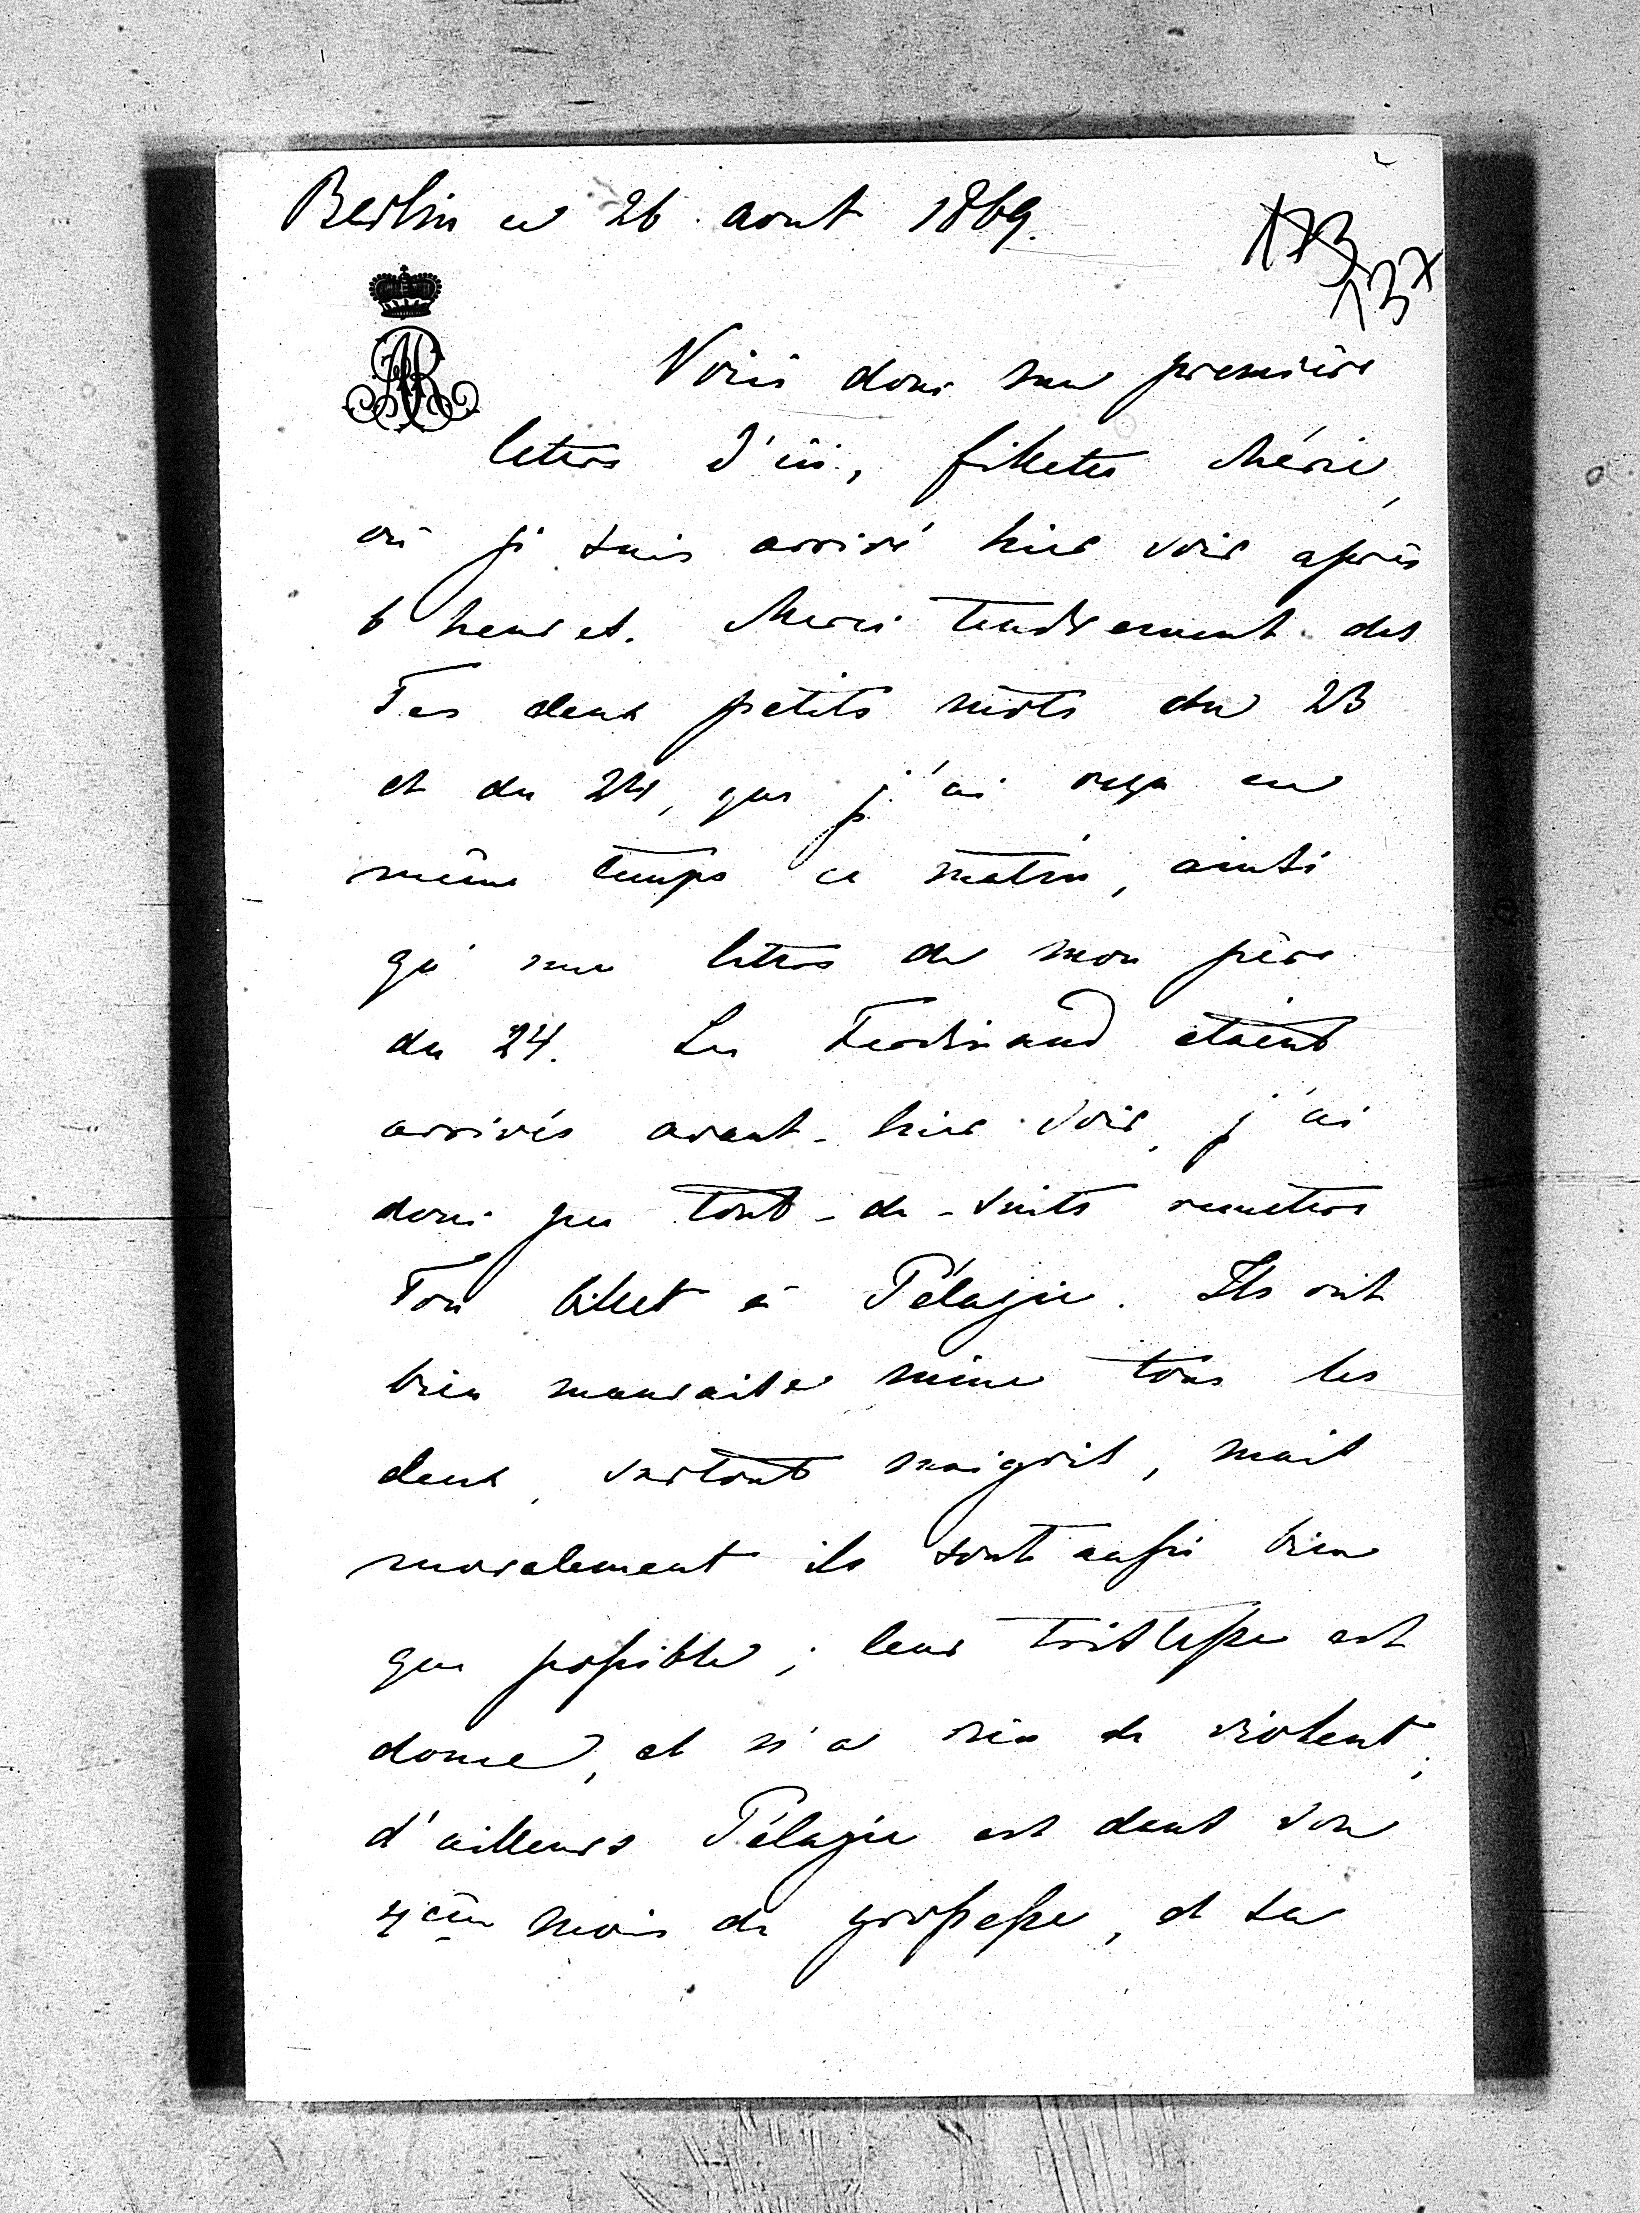 Berlin ce 26 aout 1869.
173
137
Voici donc une première
lettre d'ici, fillette chérie,
où je suis arrivé hier soir après
6 heures. Merci tendrement des
Tes deux petits mots du 23
et du 24, que j'ai reçu en
même temps ce matin, ainsi
qu'une lettre de mon père
du 24. Les Ferdinand étaient
arrivés avant-hier soir, j'ai
donc pu tout-de-suite remettre
Ton billet à Pélagie. Ils ont
bien mauvaise mine tous les
deux, surtout maigris, mais
moralement ils sont aussi bien
que possible; leur tristesse est
douce, et n'a rien de violent;
d'ailleurs Pélagie est dans son
4ème mois de grossesse, et sa